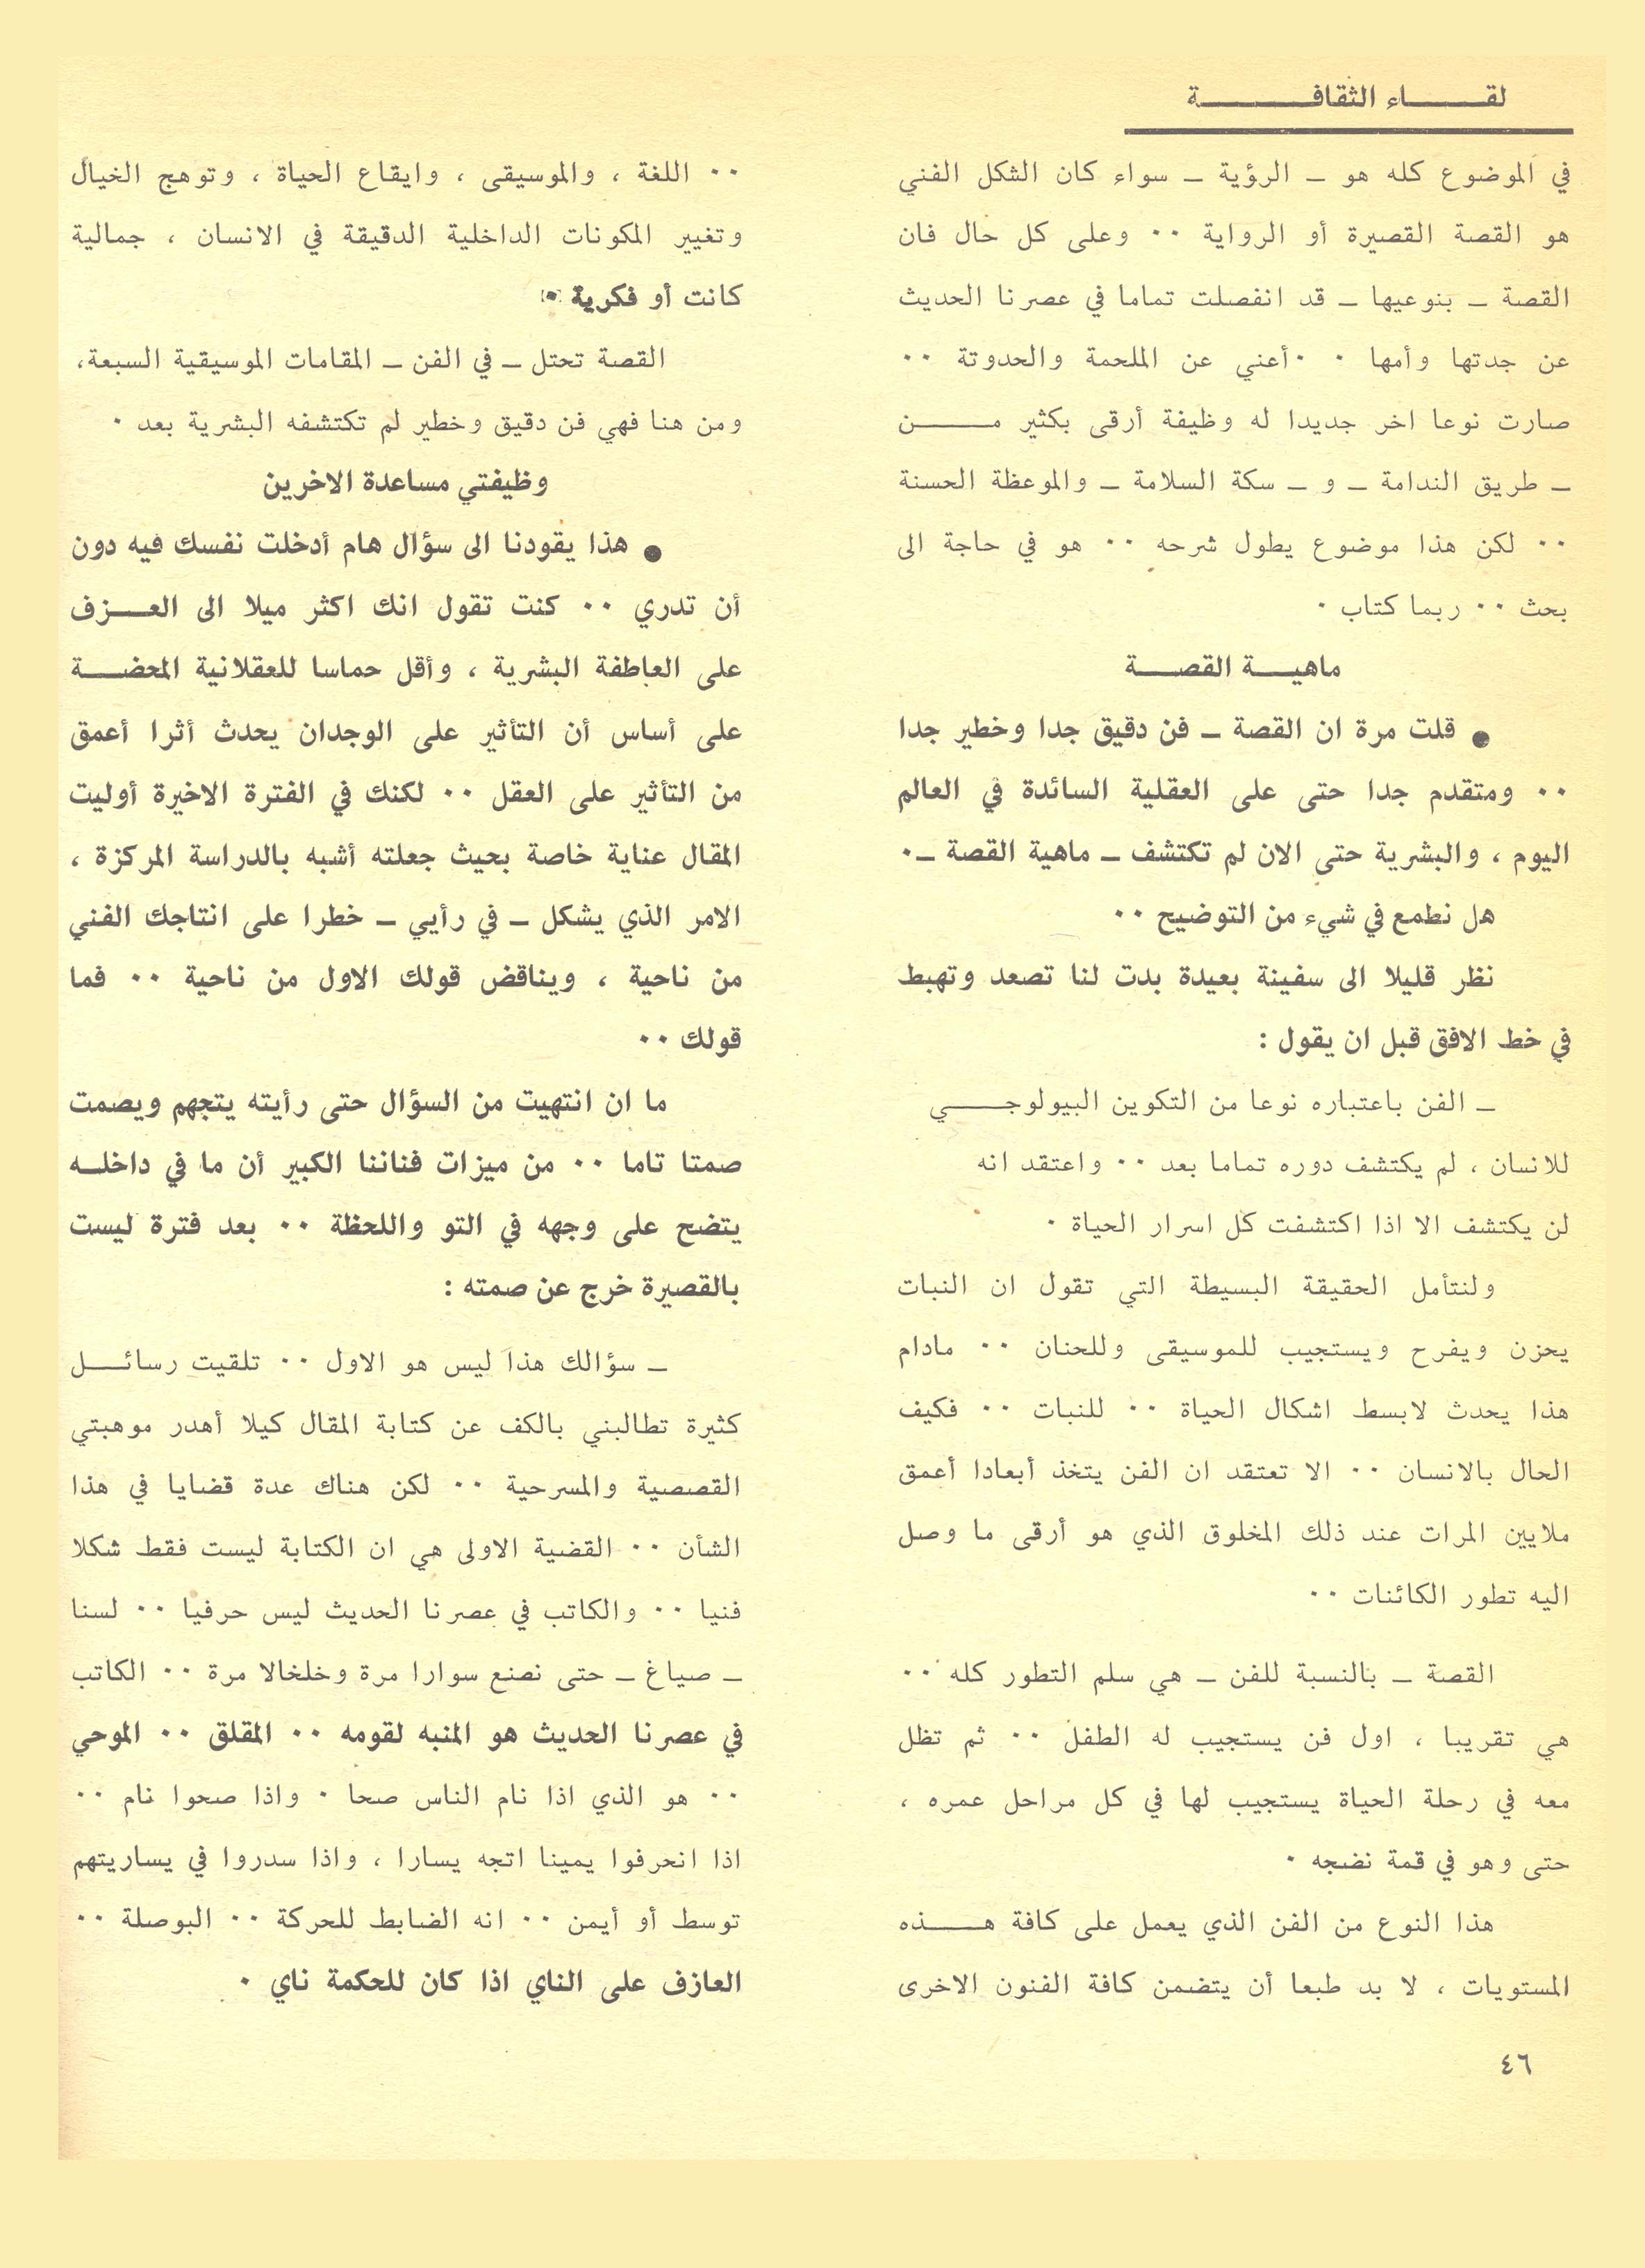 لقاء الثقافة
في الموضوع كله هو ـ الرؤية ـ سواء كان الشكل الفني
هو القصة القصيرة أو الرواية ٠٠ وعلى كل حال فان
القصة ـ بنوعيها ـ قد انفصلت تماما في عصرنا الحديث
عن جدتها وأمها ٠ ٠أعني عن الملحمة والحدوتة ٠٠
صارت نوعا اخر جديدا له وظيفة أرقى بكثير من
ـ طريق الندامة ـ و ـ سكة السلامة ـ والموعظة الحسنة
٠٠ لكن هذا موضوع يطول شرحه ٠٠ هو في حاجة الى
بحث ٠٠ ربما كتاب ٠
ماهية القصة
● قلت مرة ان القصة ـ فن دقيق جدا وخطير جدا
٠٠ ومتقدم جدا حتى على العقلية السائدة في العالم
اليوم ، والبشرية حتى الان لم تكتشف ـ ماهية القصة ـ٠
هل نطمع في شيء من التوضيح ٠٠
نظر قليلا الى سفينة بعيدة بدت لنا تصعد وتهبط
في خط الافق قبل ان يقول :
ـ الفن باعتباره نوعا من التكوين البيولوجي
للانسان ، لم يكتشف دوره تماما بعد ٠٠ واعتقد انه
لن يكتشف الا اذا اكتشفت كل اسرار الحياة ٠
ولنتأمل الحقيقة البسيطة التي تقول ان النبات
يحزن ويفرح ويستجيب للموسيقى وللحنان ٠٠ مادام
هذا يحدث لابسط اشكال الحياة ٠٠ للنبات ٠٠ فكيف
الحال بالانسان ٠٠ الا تعتقد ان الفن يتخذ أبعادا أعمق
ملايين المرات عند ذلك المخلوق الذي هو أرقى ما وصل
اليه تطور الكائنات ٠٠
القصة ـ بالنسبة للفن ـ هي سلم التطور كله ٠٠
هي تقريبا ، اول فن يستجيب له الطفل ٠٠ ثم تظل
معه في رحلة الحياة يستجيب لها في كل مراحل عمره ،
حتى وهو في قمة نضجه ٠
هذا النوع من الفن الذي يعمل على كافة هذه
المستويات ، لا بد طبعا أن يتضمن كافة الفنون الاخرى
٠٠ اللغة ، والموسيقى ، وايقاع الحياة ، وتوهج الخيال
وتغيير المكونات الداخلية الدقيقة في الانسان ، جمالية
كانت أو فكرية ٠
القصة تحتل ـ في الفن ـ المقامات الموسيقية السبعة،
ومن هنا فهي فن دقيق وخطير لم تكتشفه البشرية بعد ٠
وظيفتي مساعدة الاخرين
● هذا يقودنا الى سؤال هام أدخلت نفسك فيه دون
أن تدري ٠٠ كنت تقول انك اكثر ميلا الى العزف
على العاطفة البشرية ، وأقل حماسا للعقلانية المحضة
على أساس أن التأثير على الوجدان يحدث أثرا أعمق
من التأثير على العقل ٠٠ لكنك في الفترة الاخيرة أوليت
المقال عناية خاصة بحيث جعلته أشبه بالدراسة المركزة ،
الامر الذي يشكل ـ في رأيي ـ خطرا على انتاجك الفني
من ناحية ، ويناقض قولك الاول من ناحية ٠٠ فما
قولك ٠٠
ما ان انتهيت من السؤال حتى رأيته يتجهم ويصمت
صمتا تاما ٠٠ من ميزات فناننا الكبير أن ما في داخله
يتضح على وجهه في التو واللحظة ٠٠ بعد فترة ليست
بالقصيرة خرج عن صمته :
ـ سؤالك هذا ليس هو الاول ٠٠ تلقيت رسائل
كثيرة تطالبني بالكف عن كتابة المقال كيلا أهدر موهبتي
القصصية والمسرحية ٠٠ لكن هناك عدة قضايا في هذا
الشأن ٠٠ القضية الاولى هي ان الكتابة ليست فقط شكلا
فنيا ٠٠ والكاتب في عصرنا الحديث ليس حرفيا ٠٠ لسنا
ـ صياغ ـ حتى نصنع سوارا مرة وخلخالا مرة ٠٠ الكاتب
في عصرنا الحديث هو المنبه لقومه ٠٠ المقلق ٠٠ الموحي
٠٠ هو الذي اذا نام الناس صحا ٠ واذا صحوا نام ٠٠
اذا انحرفوا يمينا اتجه يسارا ، واذا سدروا في يساريتهم
توسط أو أيمن ٠٠ انه الضابط للحركة ٠٠ البوصلة ٠٠
العازف على الناي اذا كان للحكمة ناي ٠
٤٦